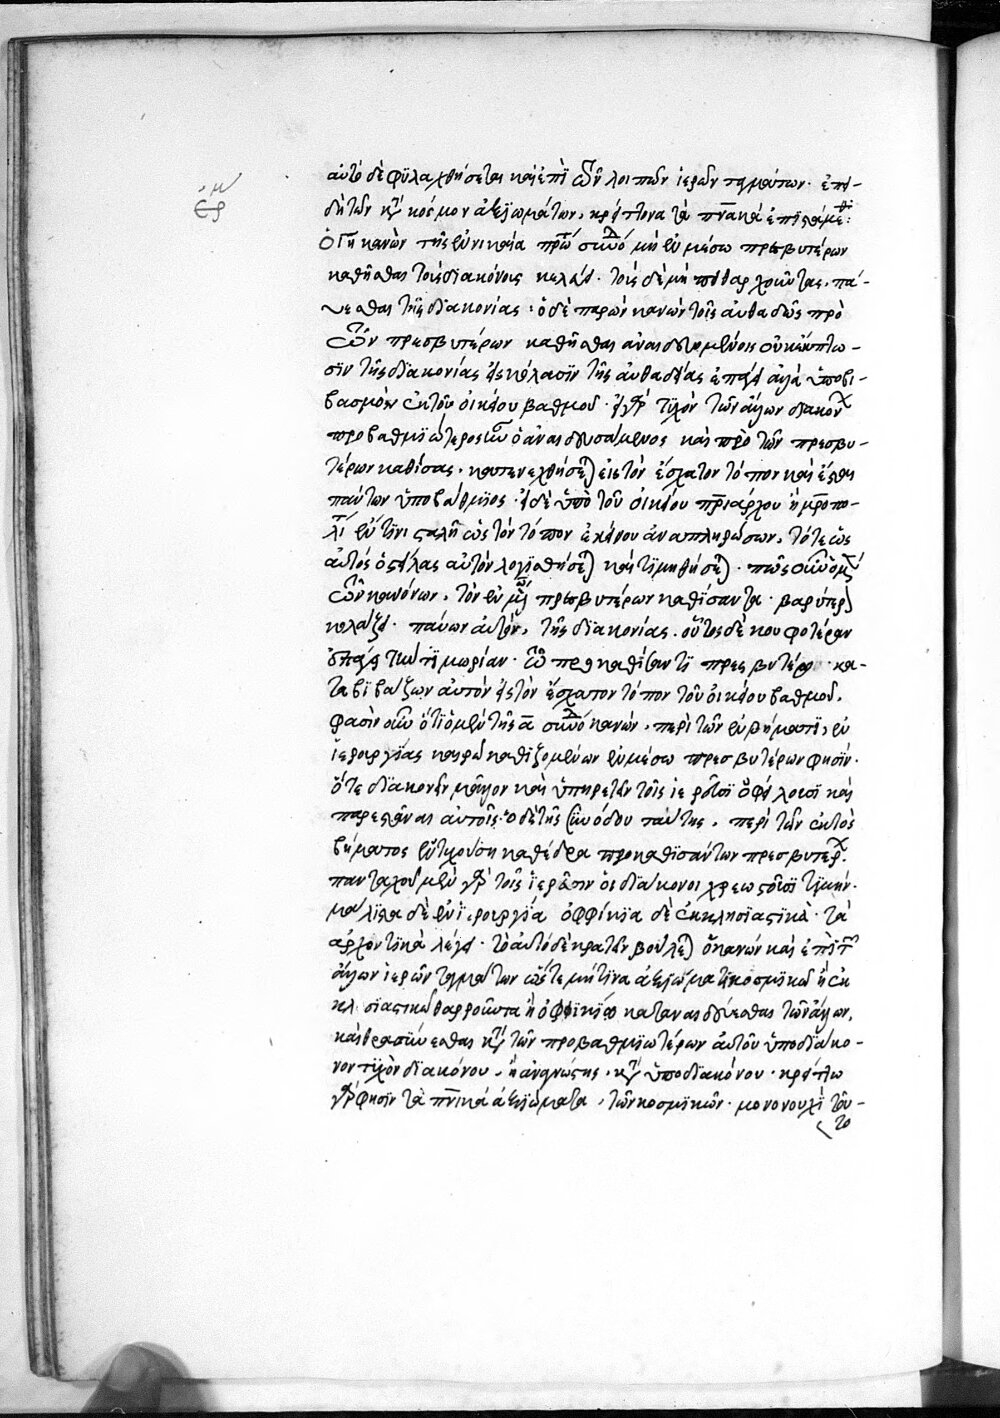 αὐτὸ δὲ φϋλαχθήσεται καὶ ἐπὶ τῶν λοιπῶν ἱερῶν ταγμάτων· ἐπει-
δὴ τῶν κατὰ κόσμον ἀξιωμάτων, κρείττονα τὰ πνικὰ ἐπιστάμεθα:
Ὁ ιη κανὼν τῆς ἐν νικαία πρώτης συνόδου μὴ ἐν μέσω πρεσβυτέρων
καθῆσθαι τοὺς διακόνους κελεύει· τοὺς δὲ μὴ πειθαρχοῦντας, παύ-
εσθαι τῆς διακονίας· ὁ δὲ παρὼν κανὼν τοῖς αὐθαδῶς πρὸ
τῶν πρεσβυτέρων καθῆσθαι ἀναιδευομένοις οὐκ ἔκπτω-
σϊν τῆς διακονίας εἰς κόλασϊν τῆς αὐθαδείας ἐπάγει ἀλλὰ ὑποβι-
βασμὸν ἐκ τοῦ οἰκείου βαθμοῦ· εἰ γὰρ τυχὸν τῶν ἄλλων διακόνων
προβαθμϊώτερος ὢν ὁ ἀναιδευσάμενος καὶ πρὸ τῶν πρεσβυ-
τέρων καθίσας, κατενεχθήσεται εἰς τὸν ἔσχατον τόπον καὶ ἔσται
πάντων ὑποβάθμϊος· εἰ δὲ ὑπὸ τοῦ οἰκείου πριάρχου ἢ μροπο-
λί ἔν τινι σταλῆ ὡς τὸν τόπον ἐκείνου ἀναπληρώσων, τότε ὡς
αὐτὸς ὁ στείλας αὐτὸν λογισθήσεται καὶ τϊμηθήσεται· πῶς οὖν ὁ μὲν
τῶν κανόνων, τὸν ἐν μέσω πρεσβυτέρων καθίσαντα βαρύτερον
κολάζει· παύων αὐτὸν, τῆς διακονίας. οὗτος δὲ κουφοτέραν
ἐπάγει τὴν τϊμωρίαν· τῶ προκαθίσαντϊ πρεσβυτέρου κα-
ταβϊβάζων αὐτὸν εἰς τὸν ἔσχατον τόπον τοῦ οἰκείου βαθμοῦ.
φασὶν οὖν ὅτι ὁ μὲν τῆς α συνόδου κανὼν, περὶ τῶν ἐν βήματϊ, ἐν
ἱερουργϊας καιρῶ καθϊζομένων ἐν μέσω πρεσβυτέρων φησϊν·
ὅτε διακονεῖν μᾶλλον καὶ ὑπηρετεῖν τοῖς ἱερεῦσϊ ὀφείλουσι καὶ
παρεστάναι αὐτοῖς· ὁ δὲ τῆς συνόδου ταύτης, περὶ τῶν ἐκτὸς
βήματος ἐν τϊχούση καθέδρα προκαθϊσάντων πρεσβυτέρων·
πανταχοῦ μὲν γὰρ τοῖς ἱερεῦσιν οἱ διάκονοι χρεωστοῦσϊ τϊμήν·
μάλϊστα δὲ ἐν ϊερουργία ὀφφίκϊα δὲ ἐκκλησϊαστϊκὰ τὰ
ἀρχοντϊκὰ λέγει· τὸ αὐτὸ δὲ κρατεῖν βούλεται ὁ κανὼν καὶ ἐπὶ τῶν
ἄλλων ἱερῶν ταγμάτων ὥστε μήτϊνα ἀξιώματϊ κοσμϊκῶ ἢ ἐκ
κλησιαστικῶ θαρροῦντα ἢ ὀφφικίω καταναιδεύεσθαι τῶν ἄλλων,
καὶ θρασύνεσθαι κατὰ τῶν προβαθμϊωτέρων αὐτοῦ ὑποδιάκο-
νον τϊχὸν διακόνου, ἢ ἀναγνώστης, κατὰ ὑποδιακόνου· κρείττω
γάρ φησϊν τὰ πνικὰ ἀξιώματα, τῶν κοσμϊκῶν· μονονουχὶ τοῦ-
το